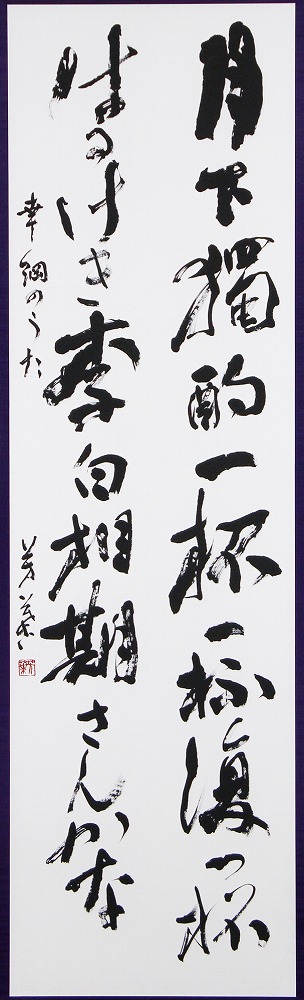 月下獨酌一杯一杯復一杯
はるけき李白相期さんかな
幸綱のうた